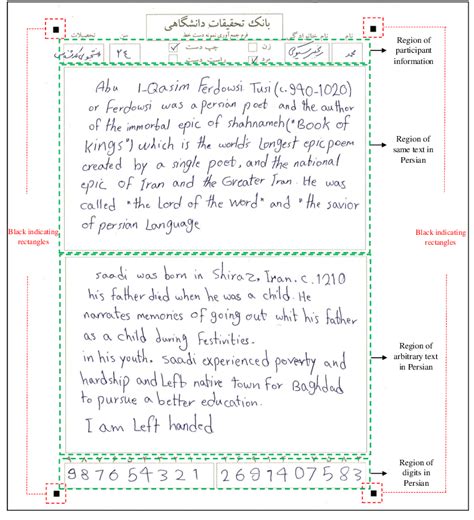 بانک تحقیقات دانشگاهی
فرم جمع‌آوری نمونه دست خط
نام
زن
چپ دست
سن
تحصیلات
محمد
مرد
راست دست
۲۴
Region of
participant
information
Abu l-Qasim Ferdowsi Tusi (c. 940-1020)
or Ferdowsi was a persian poet and the author
of the immortal epic of shahnameh ("Book of
kings") which is the world's longest epic poem
created by a single poet, and the national
epic of Iran and the Greater Iran. He was
called "the Lord of the word" and "the savior
of persian Language
Region of
same text in
Persian
Black indicating
rectangles
Black indicating
rectangles
saadi was born in Shiraz, Iran. c. 1210
his father died when he was a child. He
narrates memories of going out whit his father
as a child during festivities.
in his youth. saadi experienced poverty and
hardship and Left native town for Baghdad
to pursue a better education.
I am Left handed
Region of
arbitrary text
in Persian
9 8 7 6 5 4 3 2 1
2 6 9 1 4 0 7 5 8 3
Region of
digits in
Persian